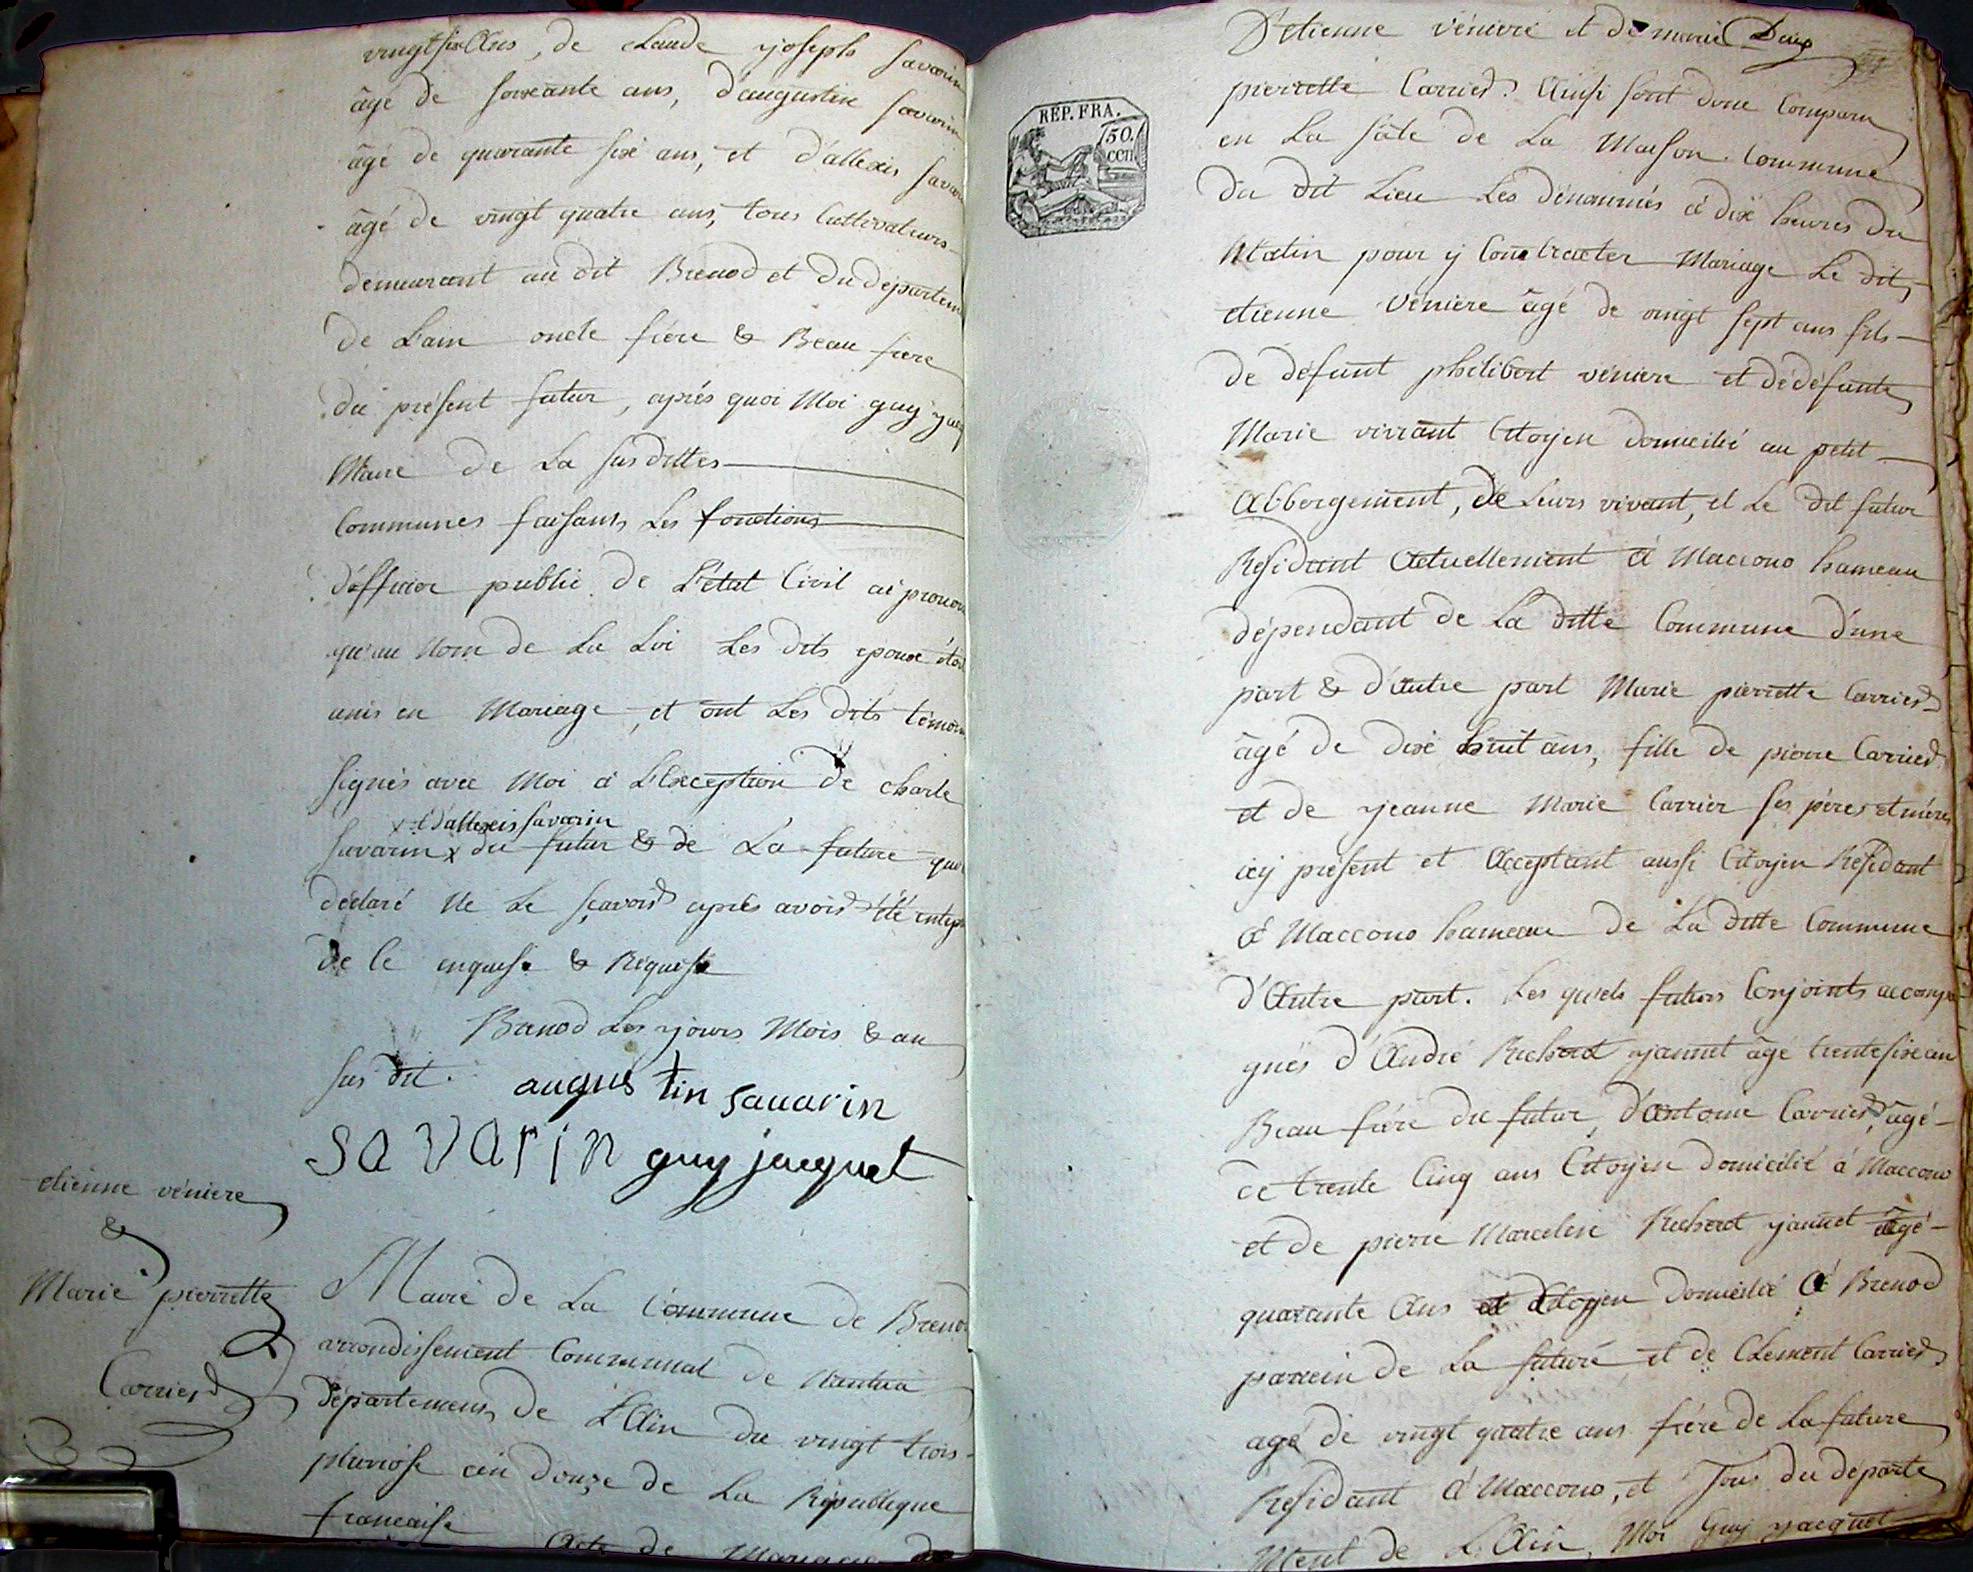 vingt six ans, de claude yoseph savarin
âgé de soixante ans, d'augustin savarin
âgé de quarante six ans, et d'allexis savarin
âgé de vingt quatre ans, tous Cultivateurs
demeurant au dit Brenod et du départem
de L'ain oncle frére & Beau frere
du présent futur, aprés quoi Moi guy yacq
Maire de La susdittes
Communes faisant Les fonctions
d'officier public de L'état Civil ai pronon
qu'au Nom de La Loi Les dits epoux éto
unis en Mariage, et ont Les dits témoin
signés avec Moi à L'Exception de charle
x et d'allexis savarin
savarin x du futur & de La future qui
déclaré Ne Le sçavoir aprés avoir été
de ce enquise & Requise
Brenod Les yours Mois & an
sus dit. augus tin savarin
savarin guy jacquet
etienne véniere
&
Marie pierrette
Carrier
Mairie de La Commune de Brenod
arrondissement Communal de Nantua
département de L'Ain du vingt trois
pluviose an douze de La République
francaise
Acte de Mariage de
REP. FRA.
50.
CEN.
D'etienne véniere et de marie Deux
pierrette Carrier. Ainsi sont donc Comparu
en La sâle de La Maison Commune
du dit Lieu Les dénommés à dix heures du
Matin pour y Contracter Mariage Le dit
etienne véniere âgé de vingt sept ans fils
de défunt philibert véniere et de défunte
Marie vivant Citoyen domicilié au petit
Abbergement, de Leurs vivant, et Le dit futur
Residant Actuellement à Maccono hameau
dépendant de La ditte Commune d'une
part & d'autre part Marie pierrette Carrier
âgé de dix huit ans, fille de pierre Carrier
et de yeanne Marie Carrier ses péres et méres
icy présent et Acceptant aussi Citoyen Résidant
à Maccono hameau de La ditte Commune
d'Autre part. Les quels futurs Conjoints accompa
gnés d'André Richerot yannet âgé trente six ans
Beau frére du futur, d'antoine Carrier, âgé
de trente Cinq ans Citoyen domicilié à Maccono
et de pierre Marcelin Richerot yannet âgé
quarante Ans et Citoyen domicilié à Brenod
parrein de La future et de Clément Carrier
agé de vingt quatre ans frére de La future
Residant à Maccono, et Tous du départe
Ment de L'Ain, Moi Guy yacquet